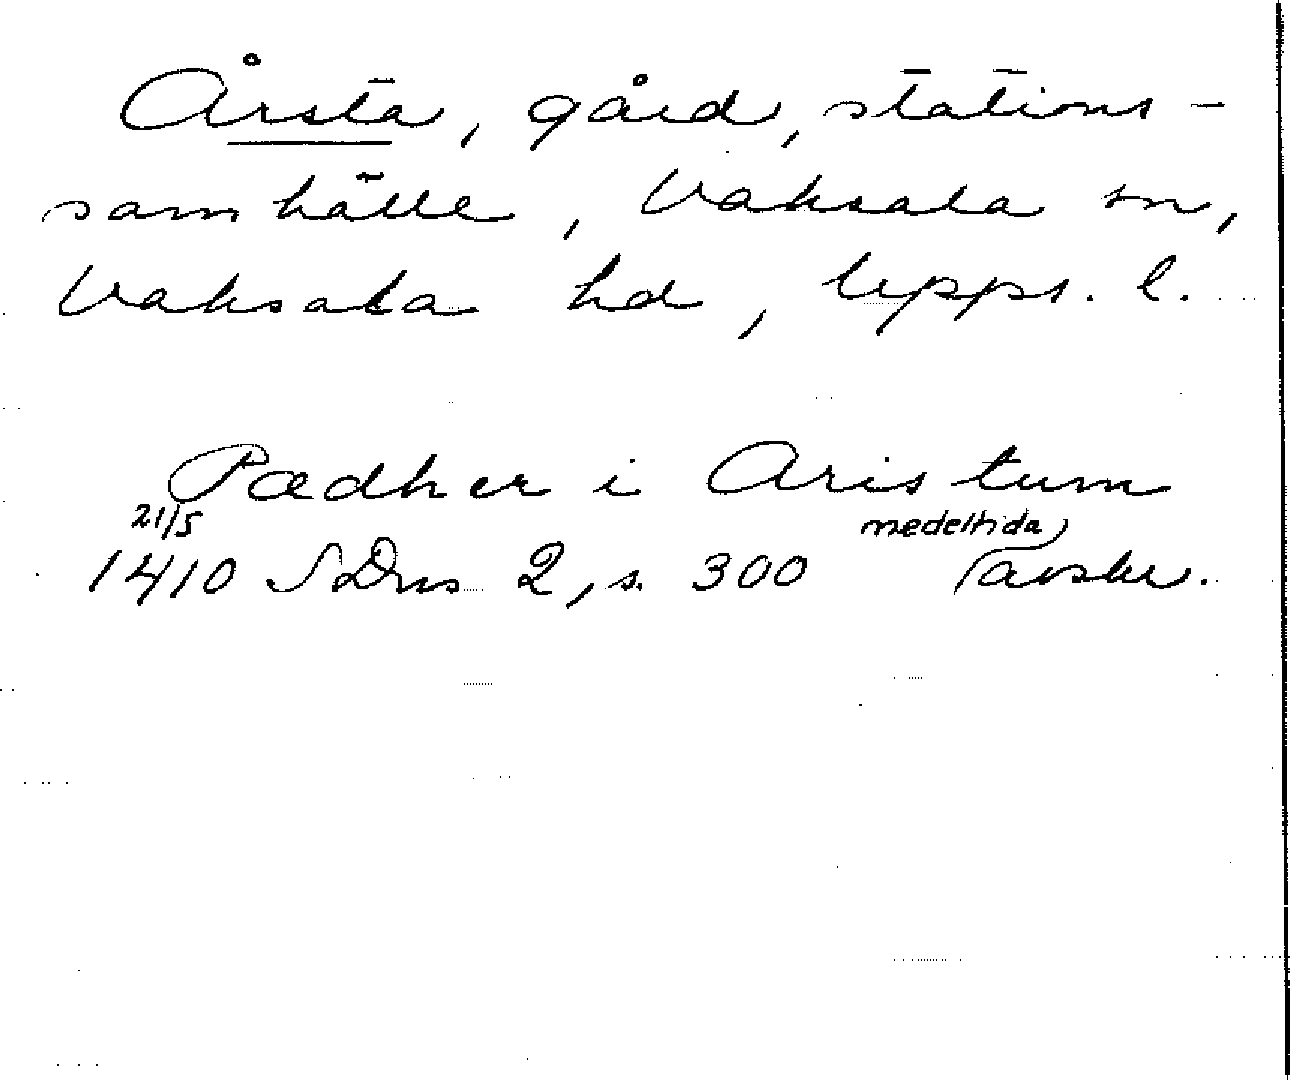 Årsta, gård, stations-
samhälle, Vaksala sn,
Vaksala hd, Upps. l.
Pædher i Aristum
21/5 medeltida
1410 SDns 2, s. 300 avskr.